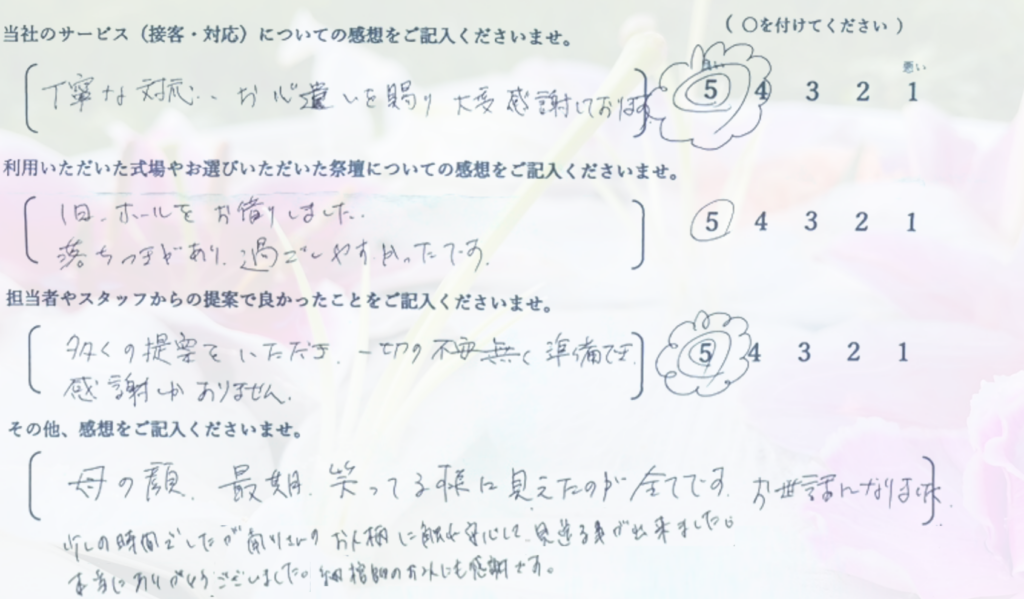 当社のサービス（接客・対応）についての感想をご記入くださいませ。
（ 〇を付けてください ）
丁寧な対応、お心遣いを賜り 大変感謝しております
良い 悪い
5 4 3 2 1
利用いただいた式場やお選びいただいた祭壇についての感想をご記入くださいませ。
1日、ホールをお借りしました.
落ちつきがあり、過ごしやすかったです.
5 4 3 2 1
担当者やスタッフからの提案で良かったことをご記入くださいませ。
多くの提案をいただき、一切の不要無く準備でき.
感謝しかありません.
5 4 3 2 1
その他、感想をご記入くださいませ。
母の顔、最期、笑ってる様に見えたのが全てです. お世話になりました.
少しの時間でしたが のお人柄に触れ安心して、見送る事が出来ました。
本当にありがとうございました。 の方々にも感謝です。